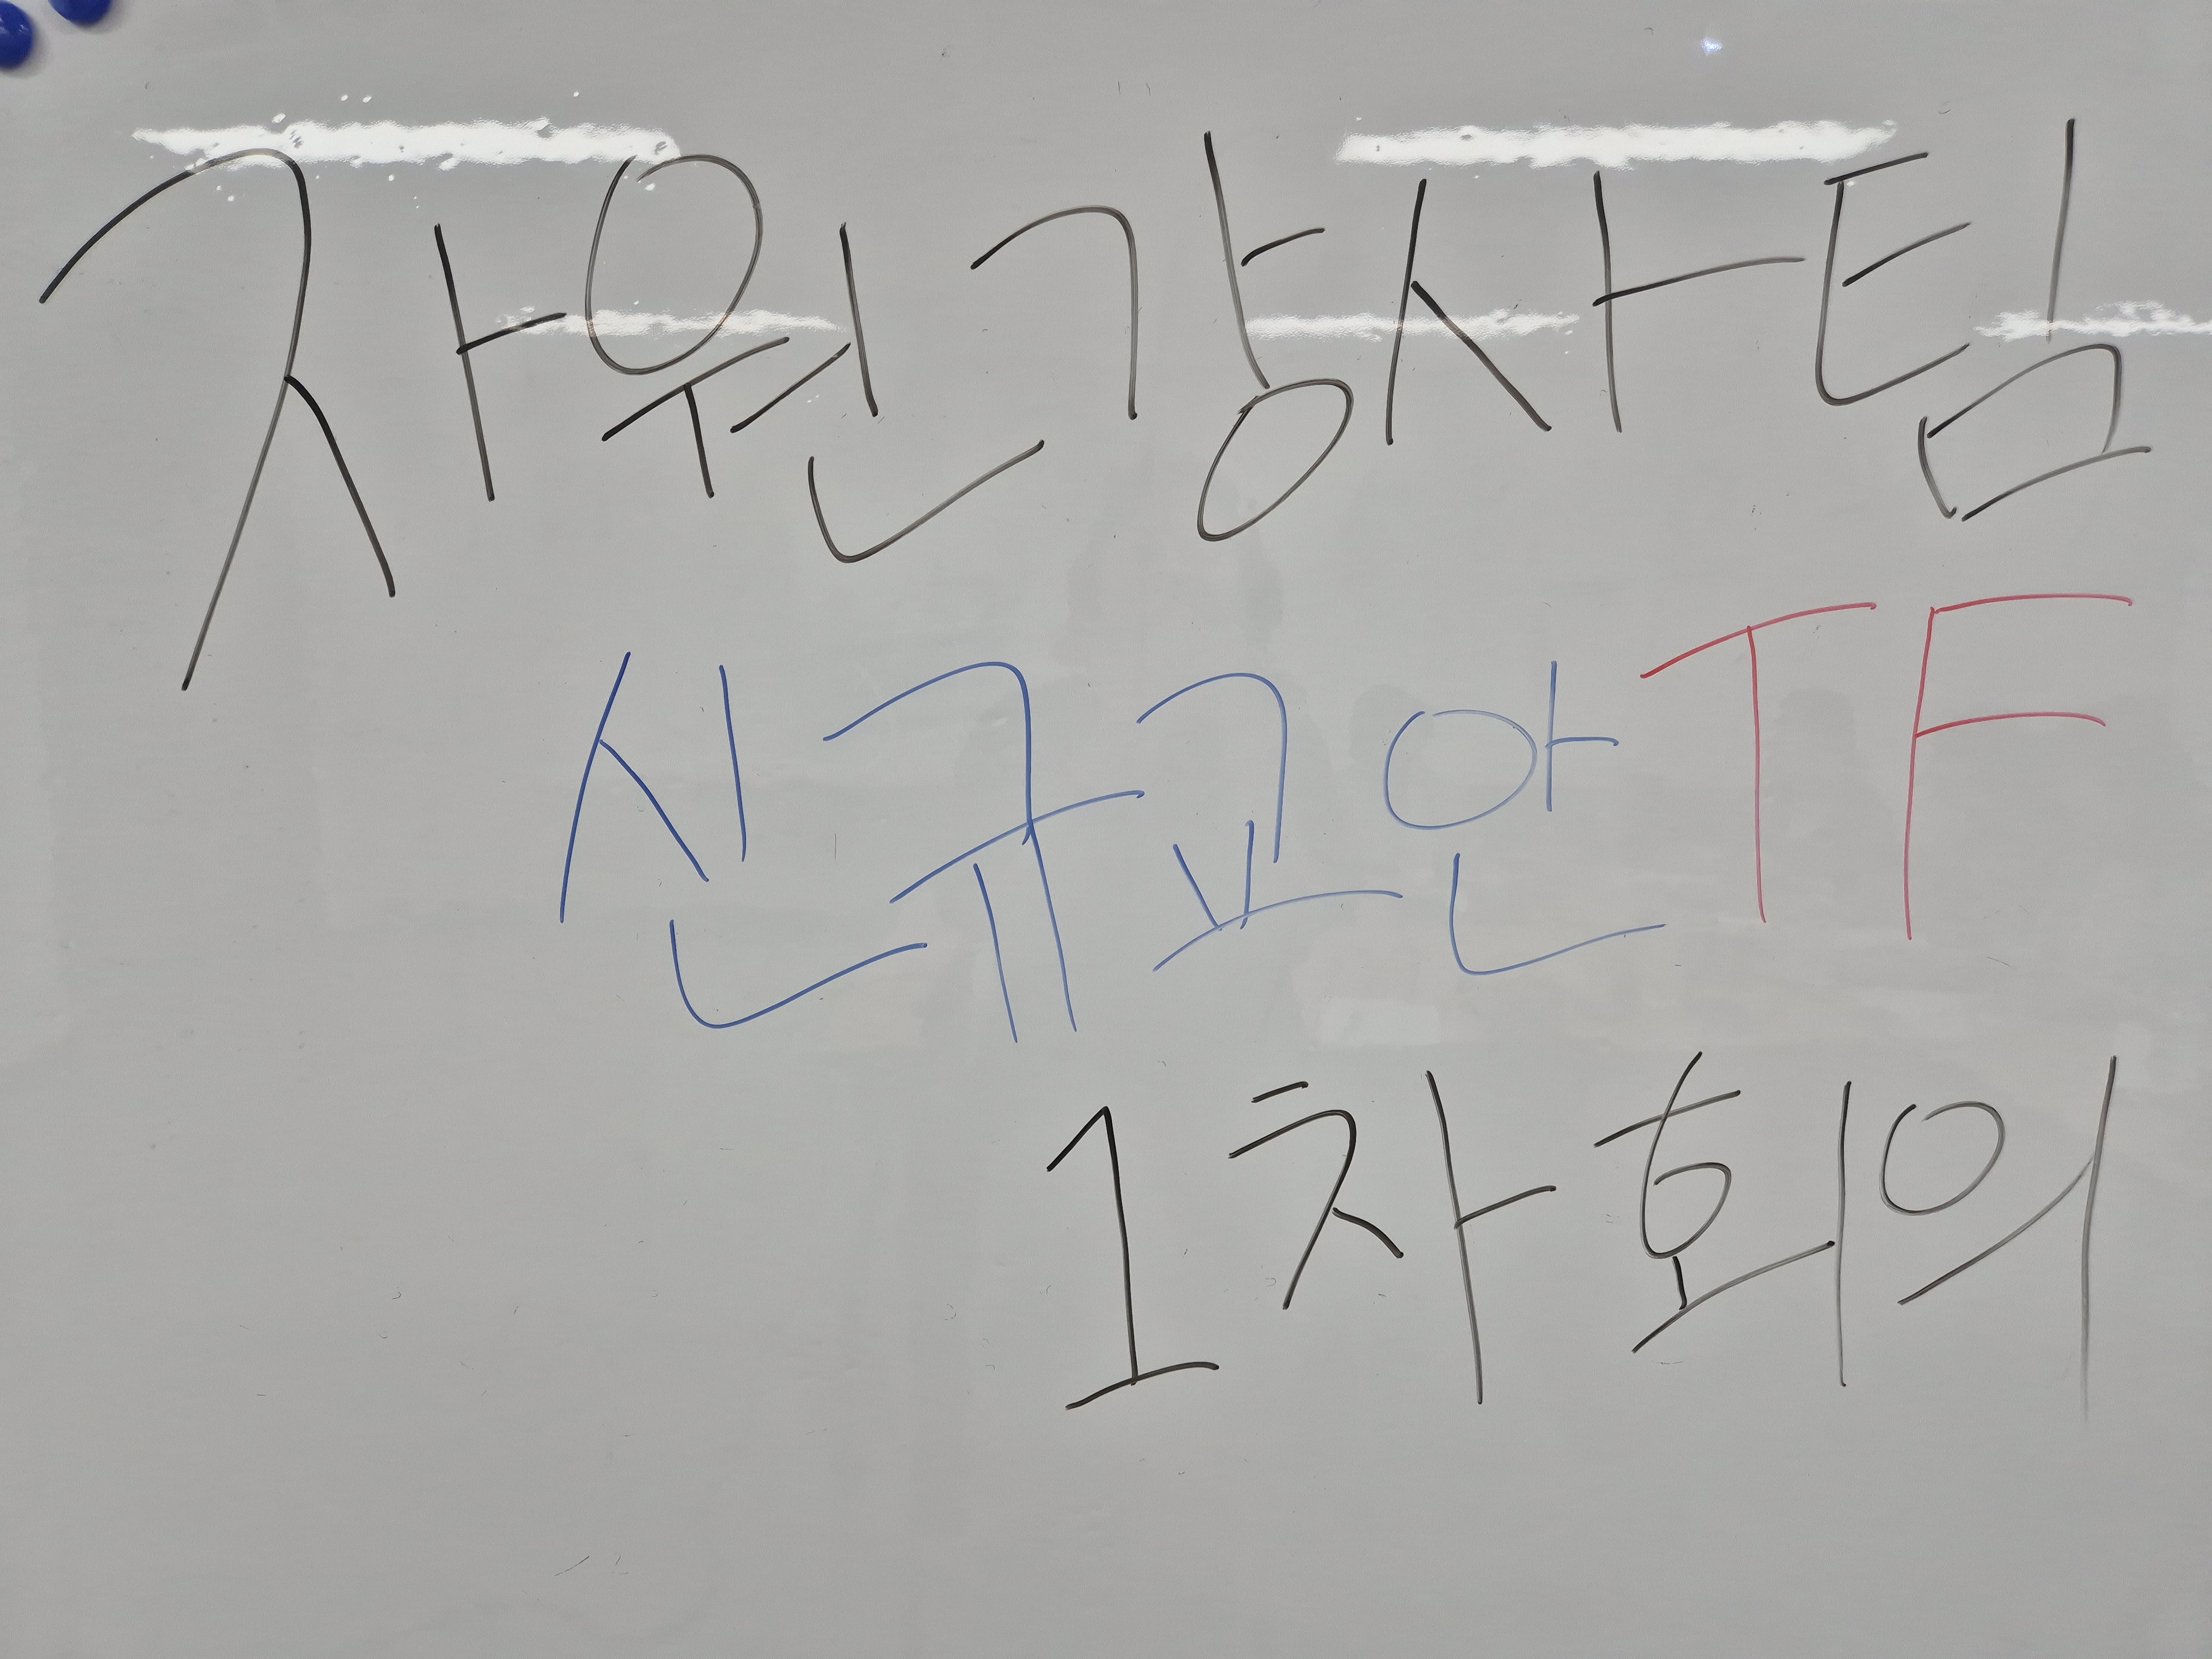 자원강사팀
신규교안TF
1차회의